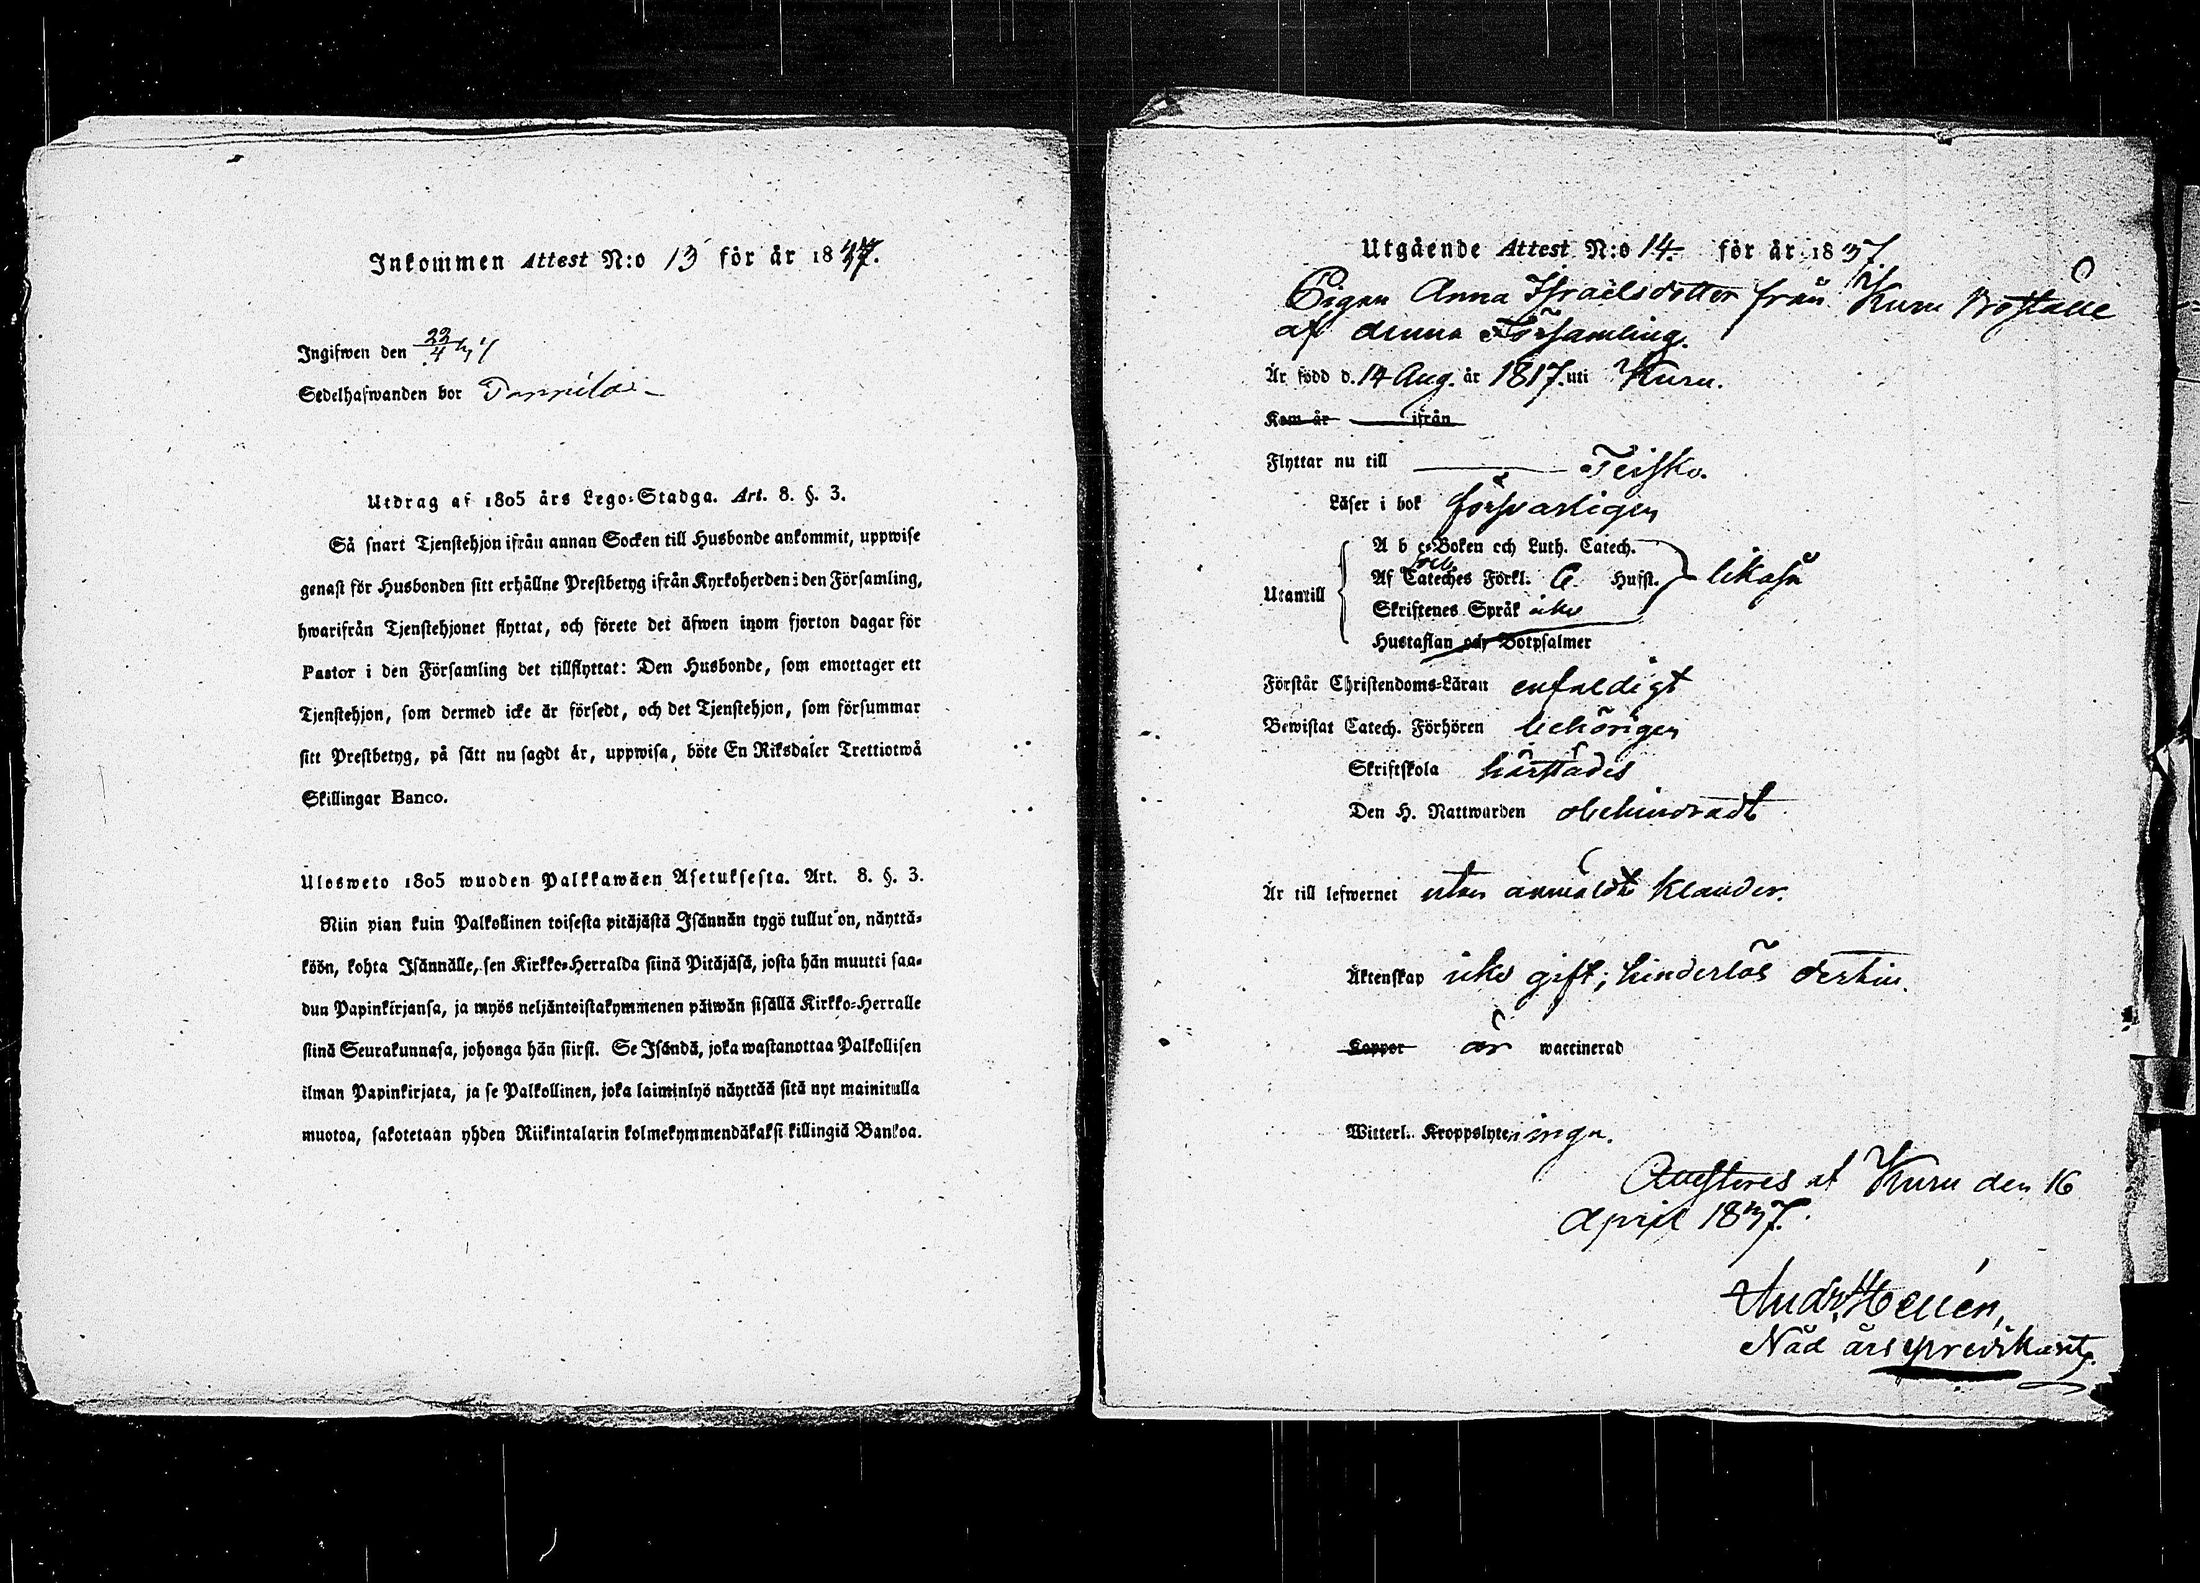 Inkommen Attest N:o 13 för år 1837.
Ingifwen den 23/4 37
Sedelhafwanden bor
Utdrag af 1805 års Lego-Stadga. Art. 8. §. 3.
Så snart Tjenstehjon ifrån annan Socken till Husbonde ankommit, uppwise
genast för Husbonden sitt erhållne Prestbetyg ifrån Kyrkoherden i den Församling,
hwarifrån Tjenstehjonet flyttat, och förete det äfwen inom fjorton dagar för
Pastor i den Församling det tillflyttat: Den Husbonde, som emottager ett
Tjenstehjon, som dermed icke är försedt, och det Tjenstehjon, som försummar
sitt Prestbetyg, på sätt nu sagdt är, uppwisa, böte En Riksdaler Trettiotwå
Skillingar Banco.
Ulosweto 1805 wuoden Palkkawäen Asetuksesta. Art. 8. §. 3.
Niin pian kuin Palkollinen toisesta pitäjästä Isännän tygö tullut on, näyttä-
köön, kohta Isännälle, sen Kirkko-Herralda siinä Pitäjäsä, josta hän muutti saa-
dun Papinkirjansa, ja myös neljäntoistakymmenen päiwän sisällä Kirkko-Herralle
siinä Seurakunnasa, johonga hän siirsi. Se Isändä, joka wastanottaa Palkollisen
ilman Papinkirjata, ja se Palkollinen, joka laiminlyö näyttää sitä nyt mainitulla
muotoa, sakotetaan yhden Riikintalarin kolmekymmendäkaksi killingiä Bankoa.
Utgående Attest N:o 14. för år 1837.
Pigan Anna Israelsdotter från Kuru Boställe
af denna Församling.
Är född d. 14 Aug. år 1817. uti Kuru.
Kom år ifrån
Flyttar nu till Teisko.
Läser i bok försvarligen
A b c-Boken och Luth. Catech.
Af Cateches Förkl. 6. Hufst. likaså
Utantill
Skriftenes Språk icke
Hustaflan och Botpsalmer
Förstår Christendoms-Läran enfaldigt
Bewistat Catech. Förhören behörigen
Skriftskola härstädes
Den H. Nattwarden obehindradt
Är till lefwernet utan anmäldt klander.
Äktenskap icke gift; hinderlös dertill.
Koppor är waccinerad
Witterl. Kroppslyten inga.
Attesteres af Kuru den 16
April 1837.
Andr. Hellén,
Nåd årspredikant.